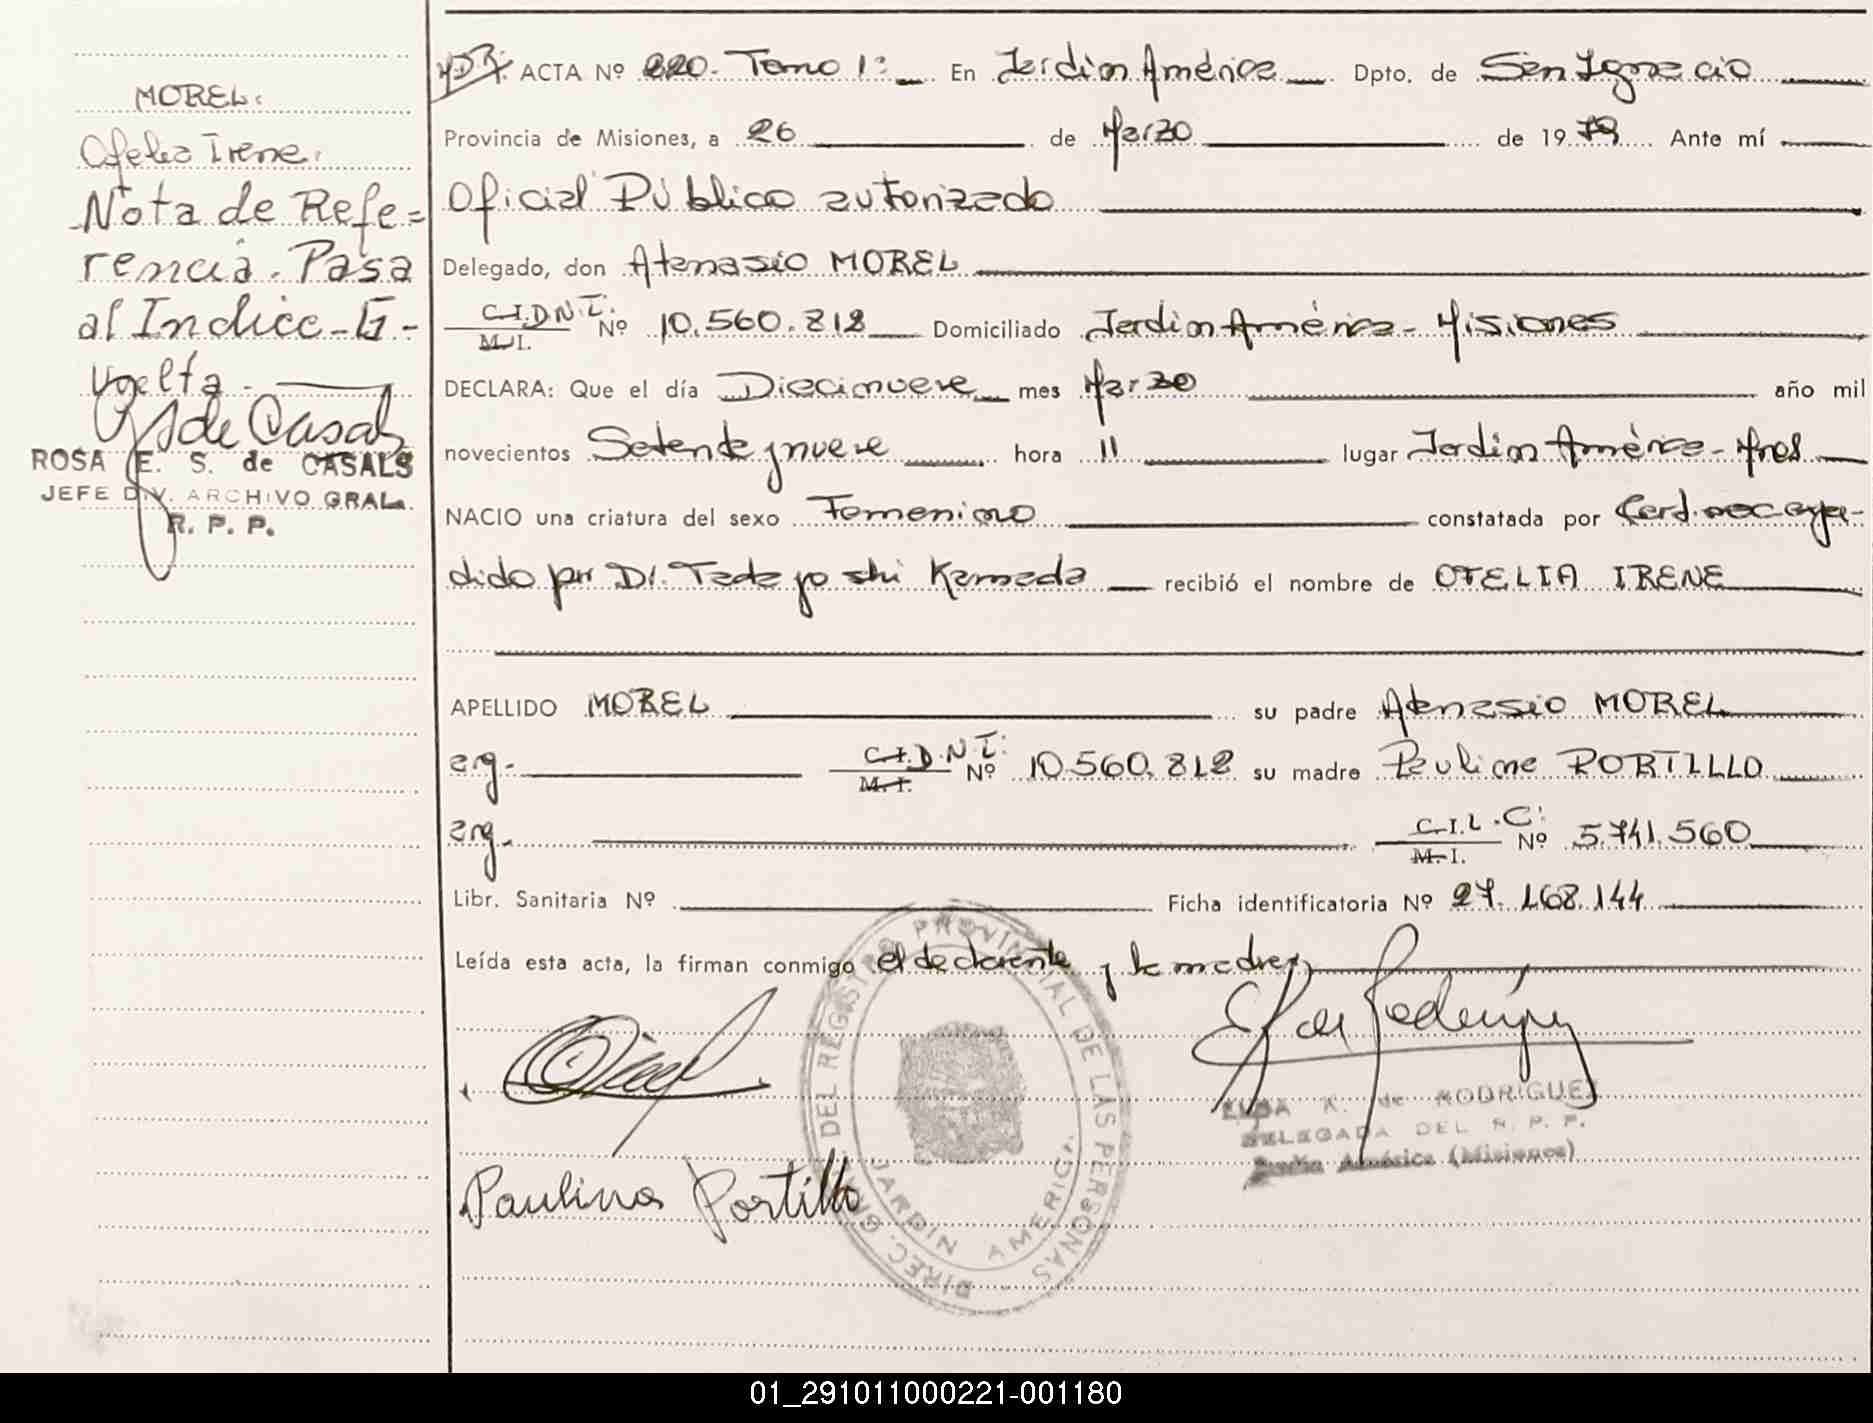 MOREL:
Ofelia Irene.
Nota de Refe=
rencia. Pasa
al Indice_G_
Vuelta.
RdeCasals
ROSA E. S. de CASALS
JEFE DIV. ARCHIVO GRAL.
R. P. P.
ACTA Nº 220. Tomo 1º En Jardin América Dpto. de San Ignacio
Provincia de Misiones, a 26 de Marzo de 1979 Ante mí
Oficial Público autorizado
Delegado, don Atanasio MOREL
C.I.D.N.I:
M.I. Nº 10.560.818 Domiciliado Jardin América - Misiones
DECLARA: Que el día Diecinueve mes Marzo año mil
novecientos Setenta y nueve hora 11 lugar Jardin América - Mnes
NACIO una criatura del sexo Femenino constatada por Cerd.nac expe-
dido por Dr. Tadayoshi Kamada recibió el nombre de OFELIA IRENE
APELLIDO MOREL su padre Atanasio MOREL
arg. C.I.D.N.I:
M.I. Nº 10.560.818 su madre Paulina PORTILLO
arg. C.I.L.C:
M.I. Nº 5.741.560
Libr. Sanitaria Nº Ficha identificatoria Nº 27.168.144
Leída esta acta, la firman conmigo el declarante y la madre
DIREC. GRAL. DEL REGISTRO PROVINCIAL DE LAS PERSONAS
JARDIN AMERICA
ELSA K. de RODRIGUEZ
DELEGADA DEL R. P. P.
Jardín América (Misiones)
Paulina Portillo
01_291011000221-001180